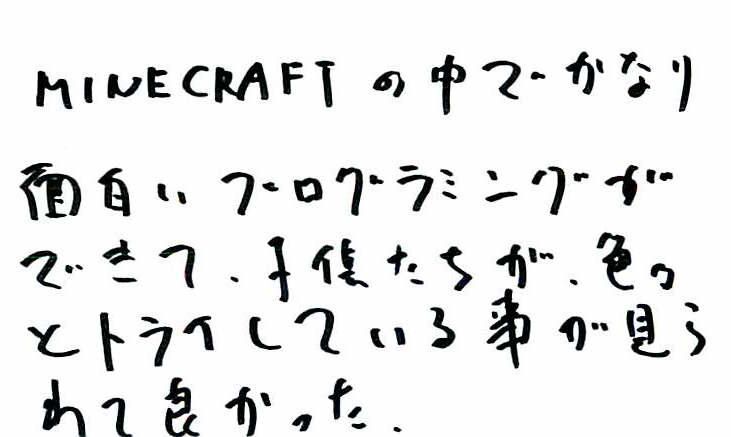 MINECRAFTの中でかなり
面白いプログラミングが
できて、子供たちが、色々
とトライしている事が見ら
れて良かった.